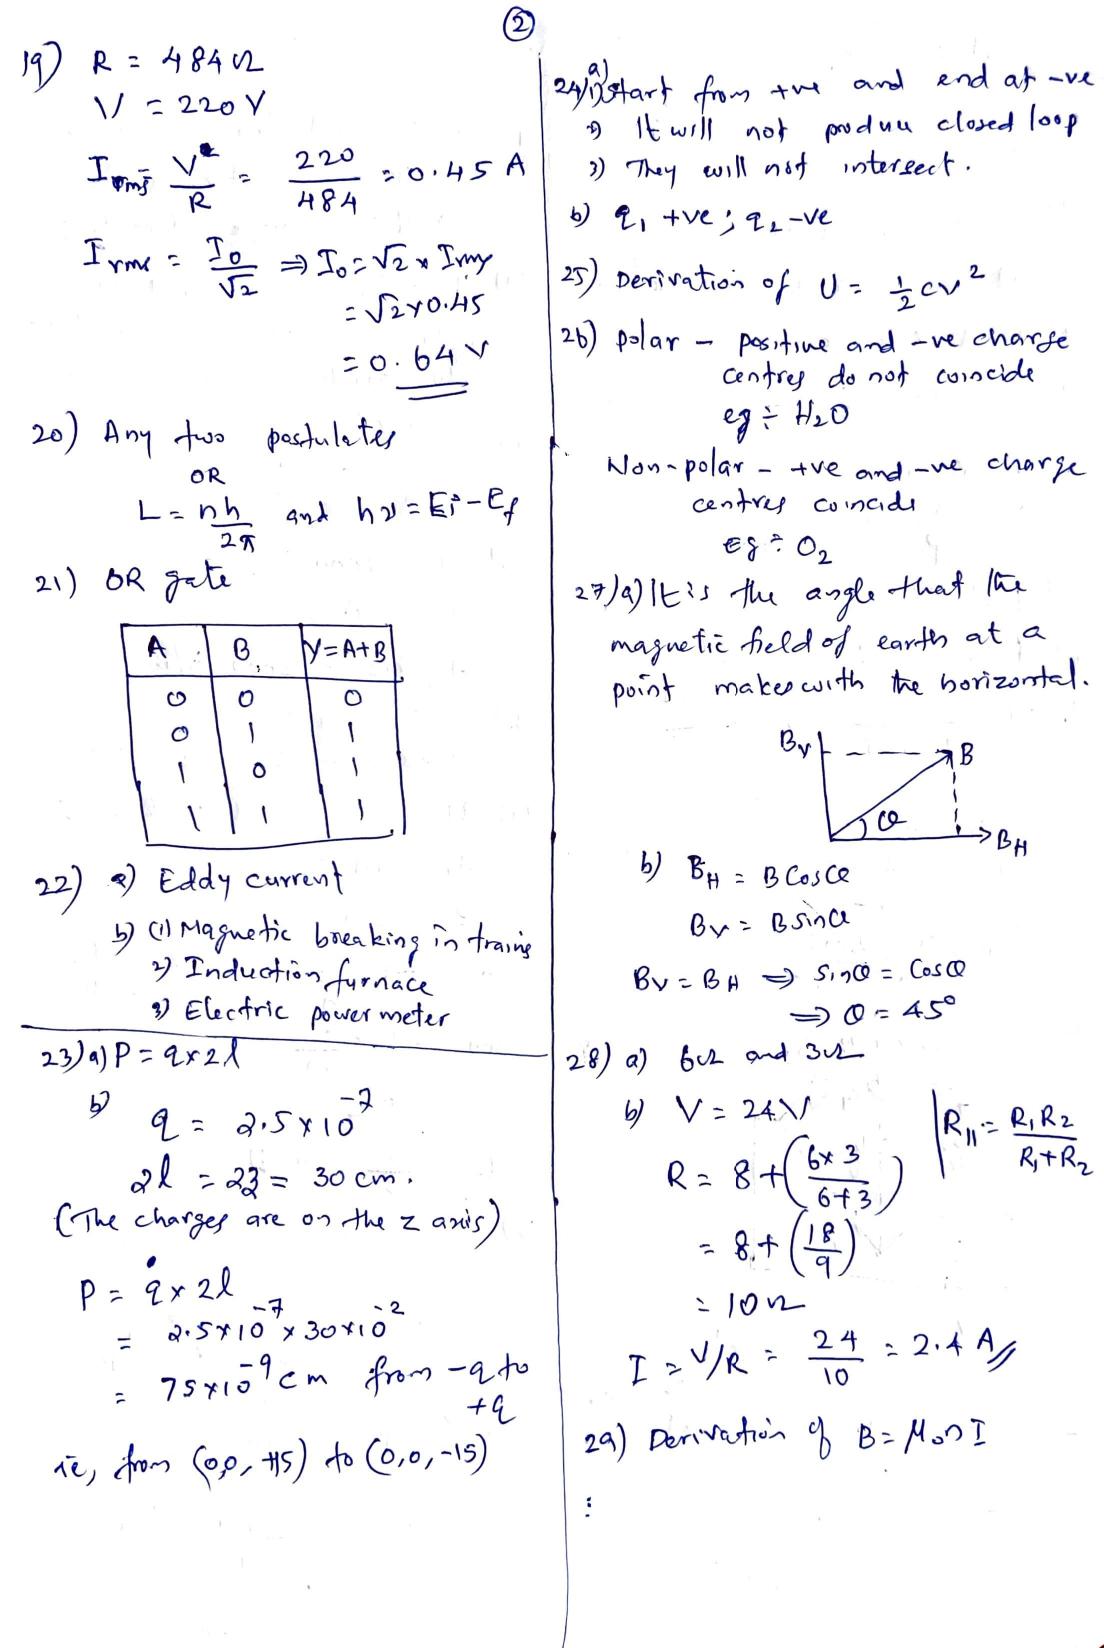 ②
19) R = 484 Ω
V = 220 V
I rms = V/R = 220/484 = 0.45 A
I rms = I₀/√2 ⇒ I₀ = √2 × Irms
= √2 × 0.45
= 0.64 V
20) Any two postulates
OR
L = nh/2π and hν = Ei - Ef
21) OR gate
A B Y = A+B
0 0 0
0 1 1
1 0 1
1 1 1
22) a) Eddy current
b) (1) Magnetic breaking in trains
2) Induction furnace
3) Electric power meter
23) a) P = q × 2l
b)
q = 2.5 × 10⁻⁷
2l = = 30 cm.
(The charges are on the z axis)
P = q × 2l
= 2.5×10⁻⁷ × 30×10⁻²
= 75×10⁻⁹ cm from -q to
+q
ie, from (0,0, +15) to (0,0,-15)
24) a) 1) Start from +ve and end at -ve
2) It will not produce closed loop
3) They will not intersect.
b) q₁ +ve ; q₂ -ve
25) Derivation of U = ½ cv²
26) polar - positive and -ve charge
centres do not coincide
eg ÷ H₂O
Non-polar - +ve and -ve charge
centres coincide
Eg ÷ O₂
27) a) It is the angle that the
magnetic field of earth at a
point makes with the horizontal.
Bv B
θ
BH
b) BH = B Cosθ
Bv = B Sinθ
Bv = BH ⇒ Sinθ = Cosθ
⇒ θ = 45°
28) a) 6Ω and 3Ω
b) V = 24V
R₁₁ = R₁R₂/R₁+R₂
R = 8 + (6×3/6+3)
= 8 + (18/9)
= 10Ω
I = V/R = 24/10 = 2.4 A //
29) Derivation of B = μ₀nI